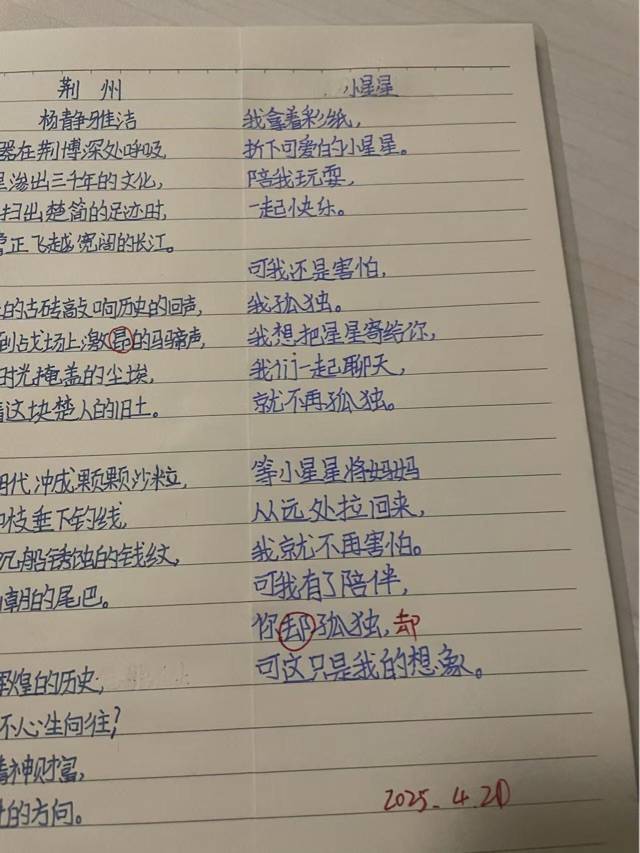 荆州
杨静雅洁
器在荆博深处呼吸,
渗出三千年的文化,
扫出楚简的足迹时,
正飞越宽阔的长江。
的古砖敲响历史的回声,
到占戈场上激昂的马蹄声,
时光掩盖的尘埃,
这块楚人的旧土。
代冲成颗颗沙粒,
枝垂下钓线,
沉船锈蚀的钱纹,
朝的尾巴。
辉煌的历史,
不心生向往?
精神财富,
的方向。
小星星
我拿着彩纸,
折下可爱的小星星。
陪我玩耍,
一起快乐。
可我还是害怕,
我孤独。
我想把星星寄给你,
我们一起聊天,
就不再孤独。
等小星星将妈妈
从远处拉回来,
我就不再害怕。
可我有了陪伴,
你却孤独,却
可这只是我的想象。
2025.4.20